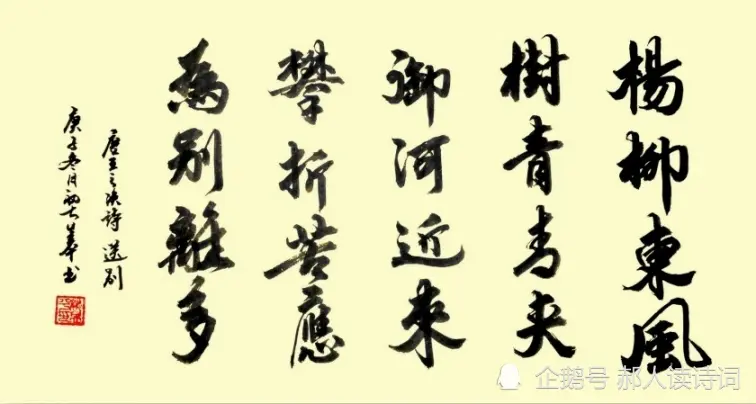 楊柳東風
樹青青夾
御河近來
攀折苦應
為别離多
唐王之渙詩 送别
庚子冬月 书
企鹅号 郝人读诗词